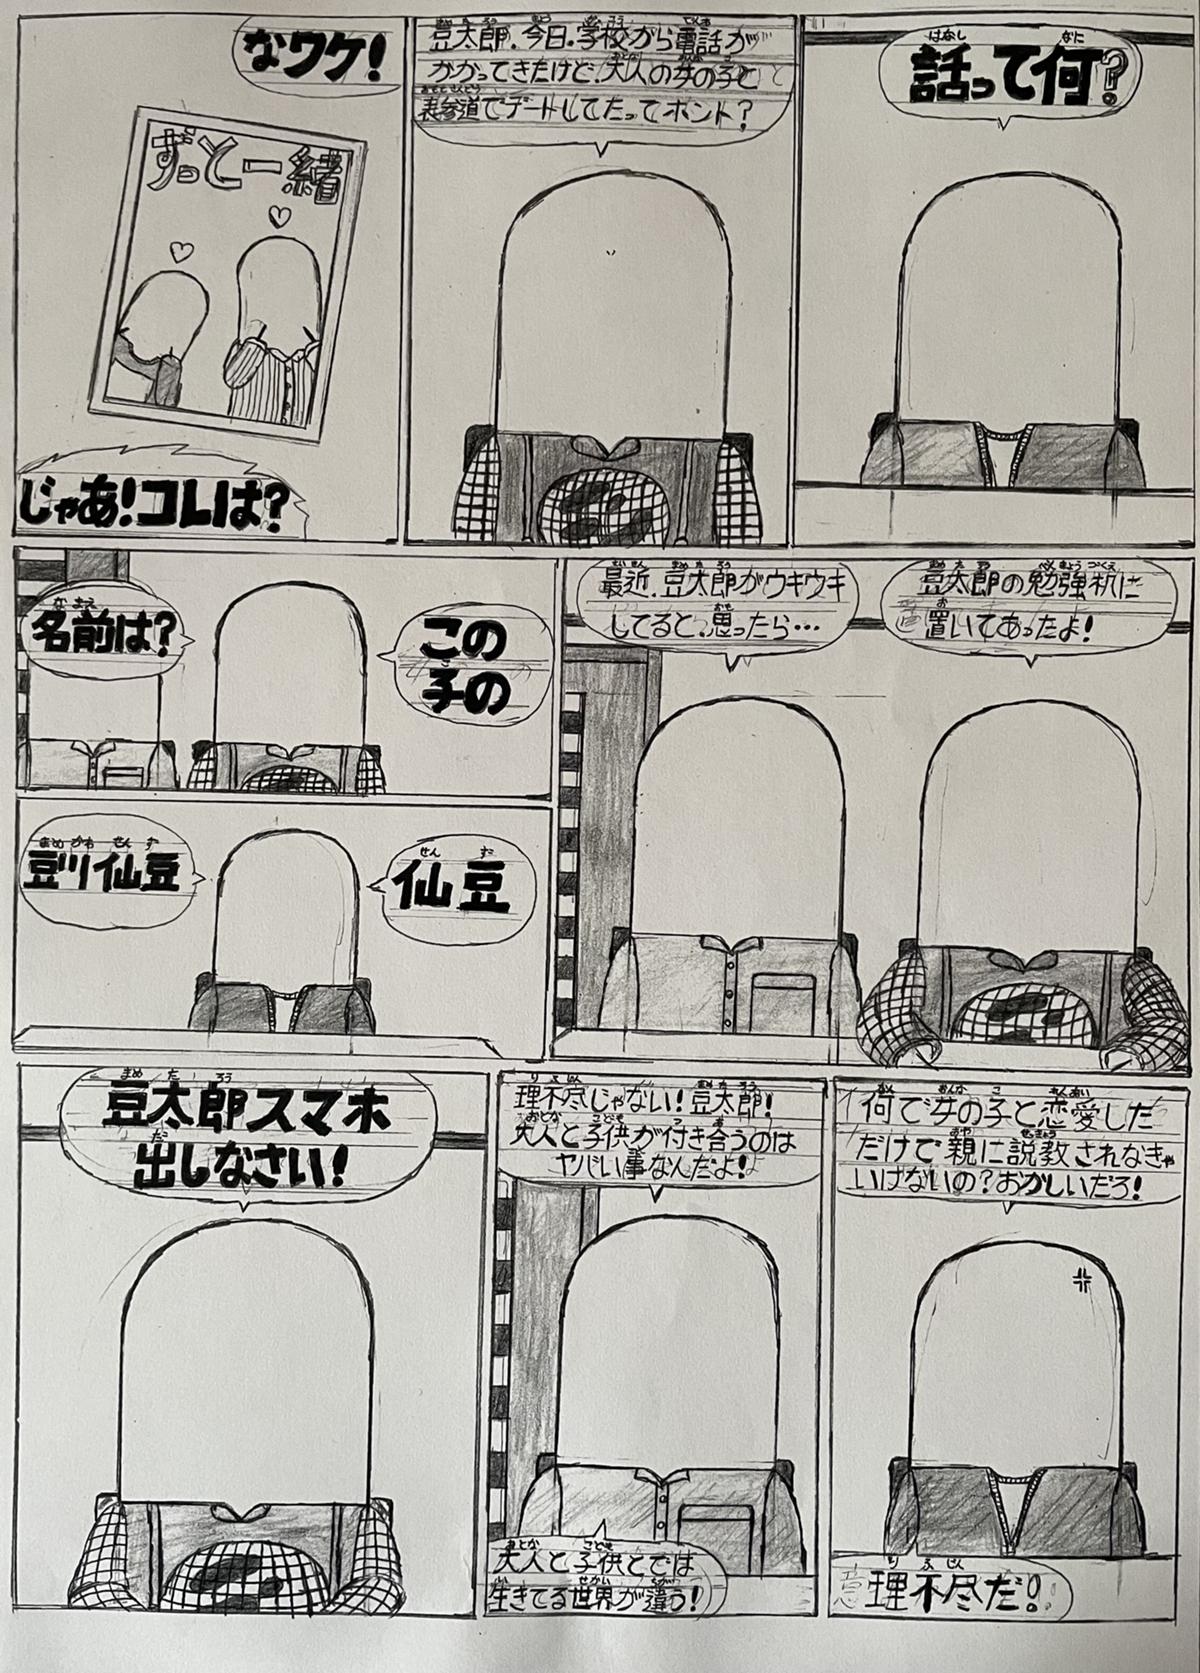 話って何?
豆太郎.今日.学校から電話が
かかってきたけど.大人の女の子と
表参道でデートしてたってホント?
なワケ!
ずっと一緒
じゃあ!コレは?
豆太郎の勉強机に
置いてあったよ!
最近.豆太郎がウキウキ
してると.思ったら…
この
子の
名前は?
仙豆
豆川仙豆
何で女の子と恋愛した
だけで親に説教されなきゃ
いけないの?おかしいだろ!
理不尽だ!
理不尽じゃない!豆太郎!
大人と子供が付き合うのは
ヤバい事なんだよ!
大人と子供とでは
生きてる世界が違う!
豆太郎スマホ
出しなさい!